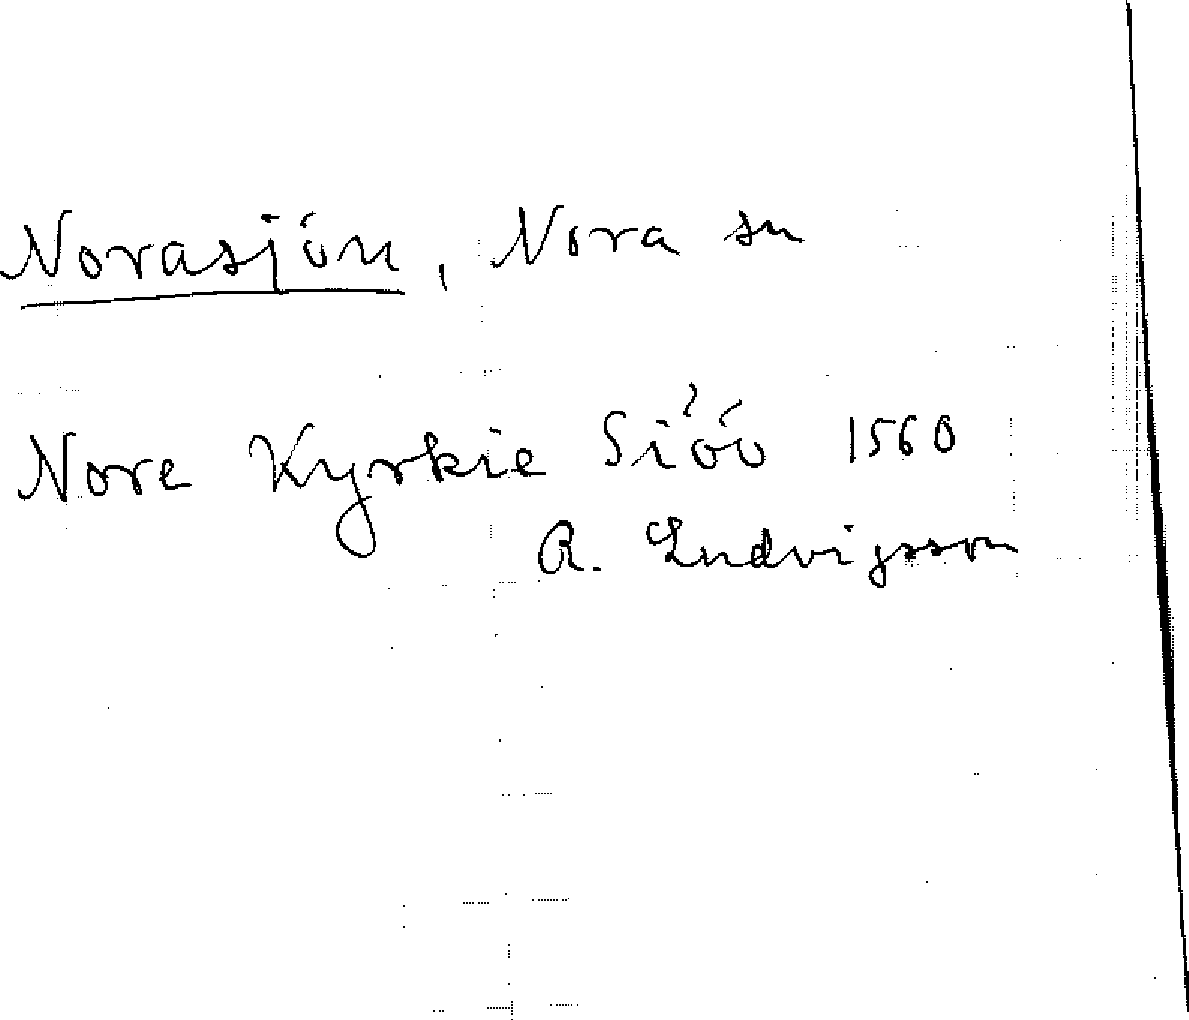 Norasjön, Nora sn
Nore Kyrkie Siöö 1560
A. Ludvigsson